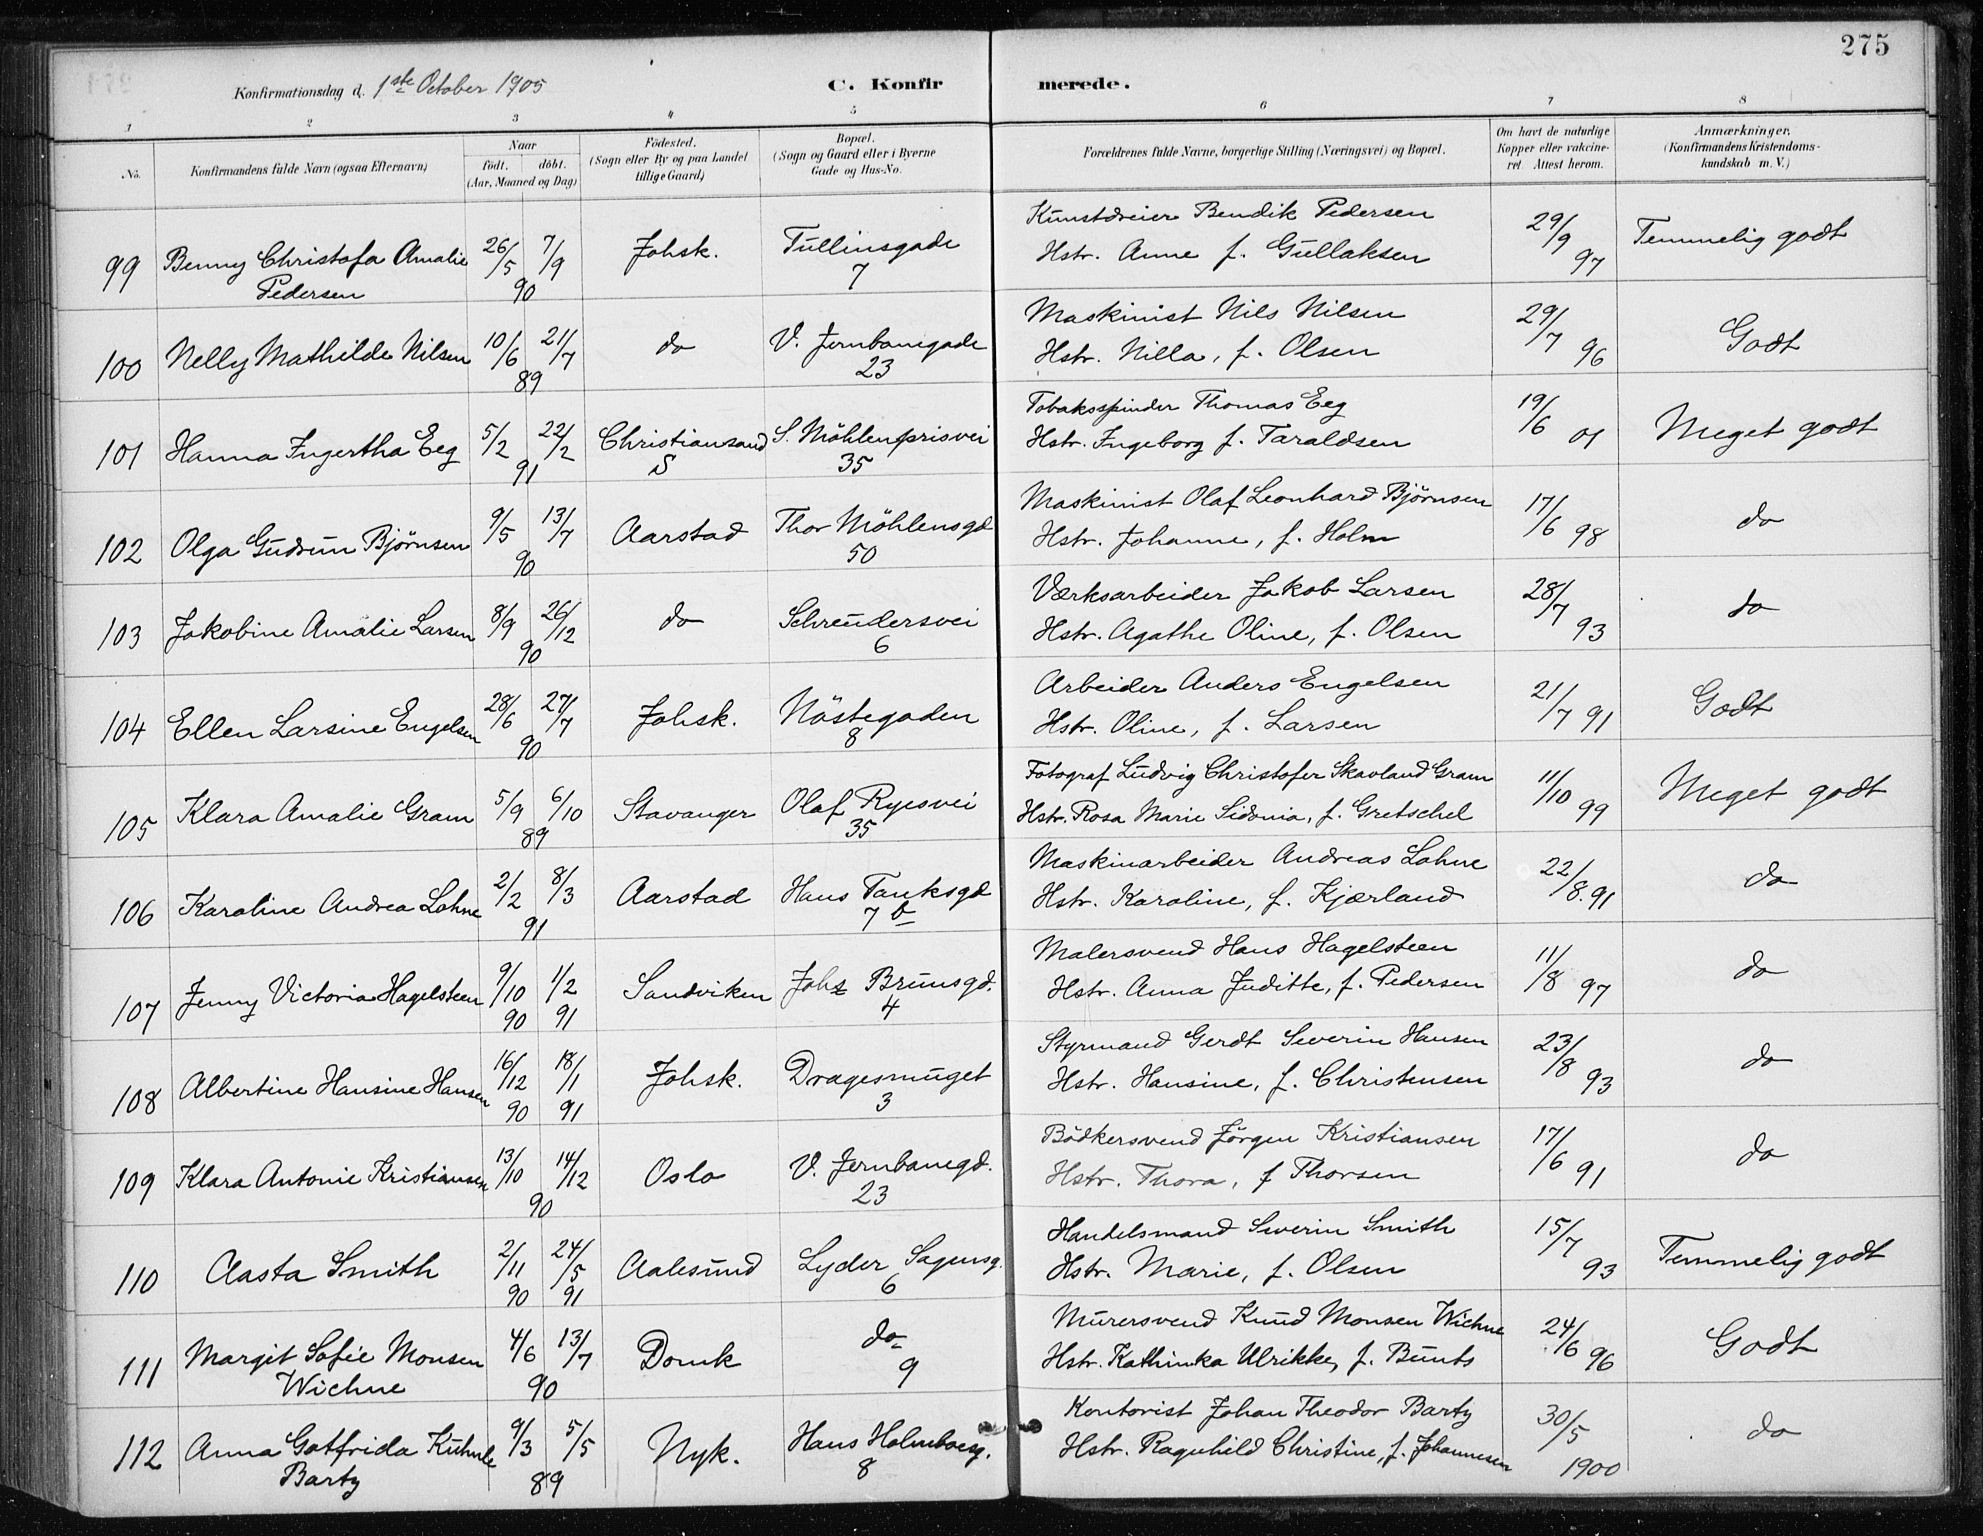 275
Konfirmationsdag d. 1ste October 1905
C. Konfirmerede.
1 2 3 4 5 6 7 8
No.
Konfirmandens fulde Navn (ogsaa Efternavn)
Naar
födt. döbt.
(Aar, Maaned og Dag)
Födested.
(Sogn eller By og paa Landet
tillige Gaard)
Bopæl.
(Sogn og Gaard eller i Byerne
Gade og Hus-No.
Forældrenes fulde Navne, borgerlige Stilling (Næringsvei) og Bopæl.
Om havt de naturlige
Kopper eller vakcine-
ret. Attest herom.
Anmærkninger.
(Konfirmandens Kristendoms-
kundskab m. V.)
99 Benny Christofa Amalie Pedersen 26/5 7/9 90 Johsk. Tullinsgade 7 Kunstdreier Bendik Pedersen
Hstr. Anne f. Gullaksen 29/9 97 Temmelig godt
100 Nelly Mathilde Nilsen 10/6 21/7 89 do V. Jernbanegade 23 Maskinist Nils Nilsen
Hstr. Nilla, f. Olsen 29/7 96 Godt
101 Hanna Ingertha Eeg 5/2 22/2 91 Christiansand S S. Möhlenprisvei 35 Tobaksspinder Thomas Eeg
Hstr. Ingeborg f. Taraldsen 19/6 01 Meget godt
102 Olga Gudrun Bjørnsen 9/5 13/7 90 Aarstad Thor Möhlensgd 50 Maskinist Olaf Leonhard Bjørnsen
Hstr. Johanne, f. Holm 17/6 98 do
103 Jakobine Amalie Larsen 8/9 26/12 90 do Schreudersvei 6 Værksarbeider Jakob Larsen
Hstr. Agathe Oline, f. Olsen 28/7 93 do
104 Ellen Larsine Engelsen 28/6 27/7 90 Johsk. Nöstegaden 8 Arbeider Anders Engelsen
Hstr. Oline, f. Larsen 21/7 91 Godt
105 Klara Amalie Gram 5/9 6/10 89 Stavanger Olaf Ryesvei 35 Fotograf Ludvig Christofer Skavland Gram
Hstr. Rosa Marie Sidonia, f. Gretschel 11/10 99 Meget godt
106 Karoline Andrea Lohne 2/2 8/3 91 Aarstad Hans Tanksgd 7 b Maskinarbeider Andreas Lohne
Hstr. Karoline, f. Kjærland 22/8. 91 do
107 Jenny Victoria Hagelsteen 9/10 90 1/2 91 Sandviken Johs Brunsgd. 4 Malersvend Hans Hagelsteen
Hstr. Anna Juditte, f. Pedersen 11/8 97 do
108 Albertine Hansine Hansen 16/12 90 18/1 91 Johsk. Dragesmuget 3 Styrmand Gerdt Severin Hansen
Hstr. Hansine, f. Christensen 23/8 93 do
109 Klara Antonie Kristiansen 13/10 14/12 90 Oslo V. Jernbanegd. 23 Bödkersvend Jörgen Kristiansen
Hstr. Thora, f Thorsen 17/6 91 do
110 Aasta Smith 2/11 90 24/5 91 Aalesund Lyder Sagensg. 6 Handelsmand Severin Smith
Hstr. Marie, f. Olsen 15/7 93 Temmelig godt
111 Margit Sofie Monsen Wichne 4/6 13/7 90 Domk do 9 Murersvend Knud Monsen Wichne
Hstr. Kathinka Ulrikke, f. Bunts 24/6 96 Godt
112 Anna Gotfrida Kuhnle Barty 9/3 5/5 89 Nyk. Hans Holmboesg. 8 Kontorist Johan Theodor Barty
Hstr. Ragnhild Christine, f. Johannesen 30/5 1900 do